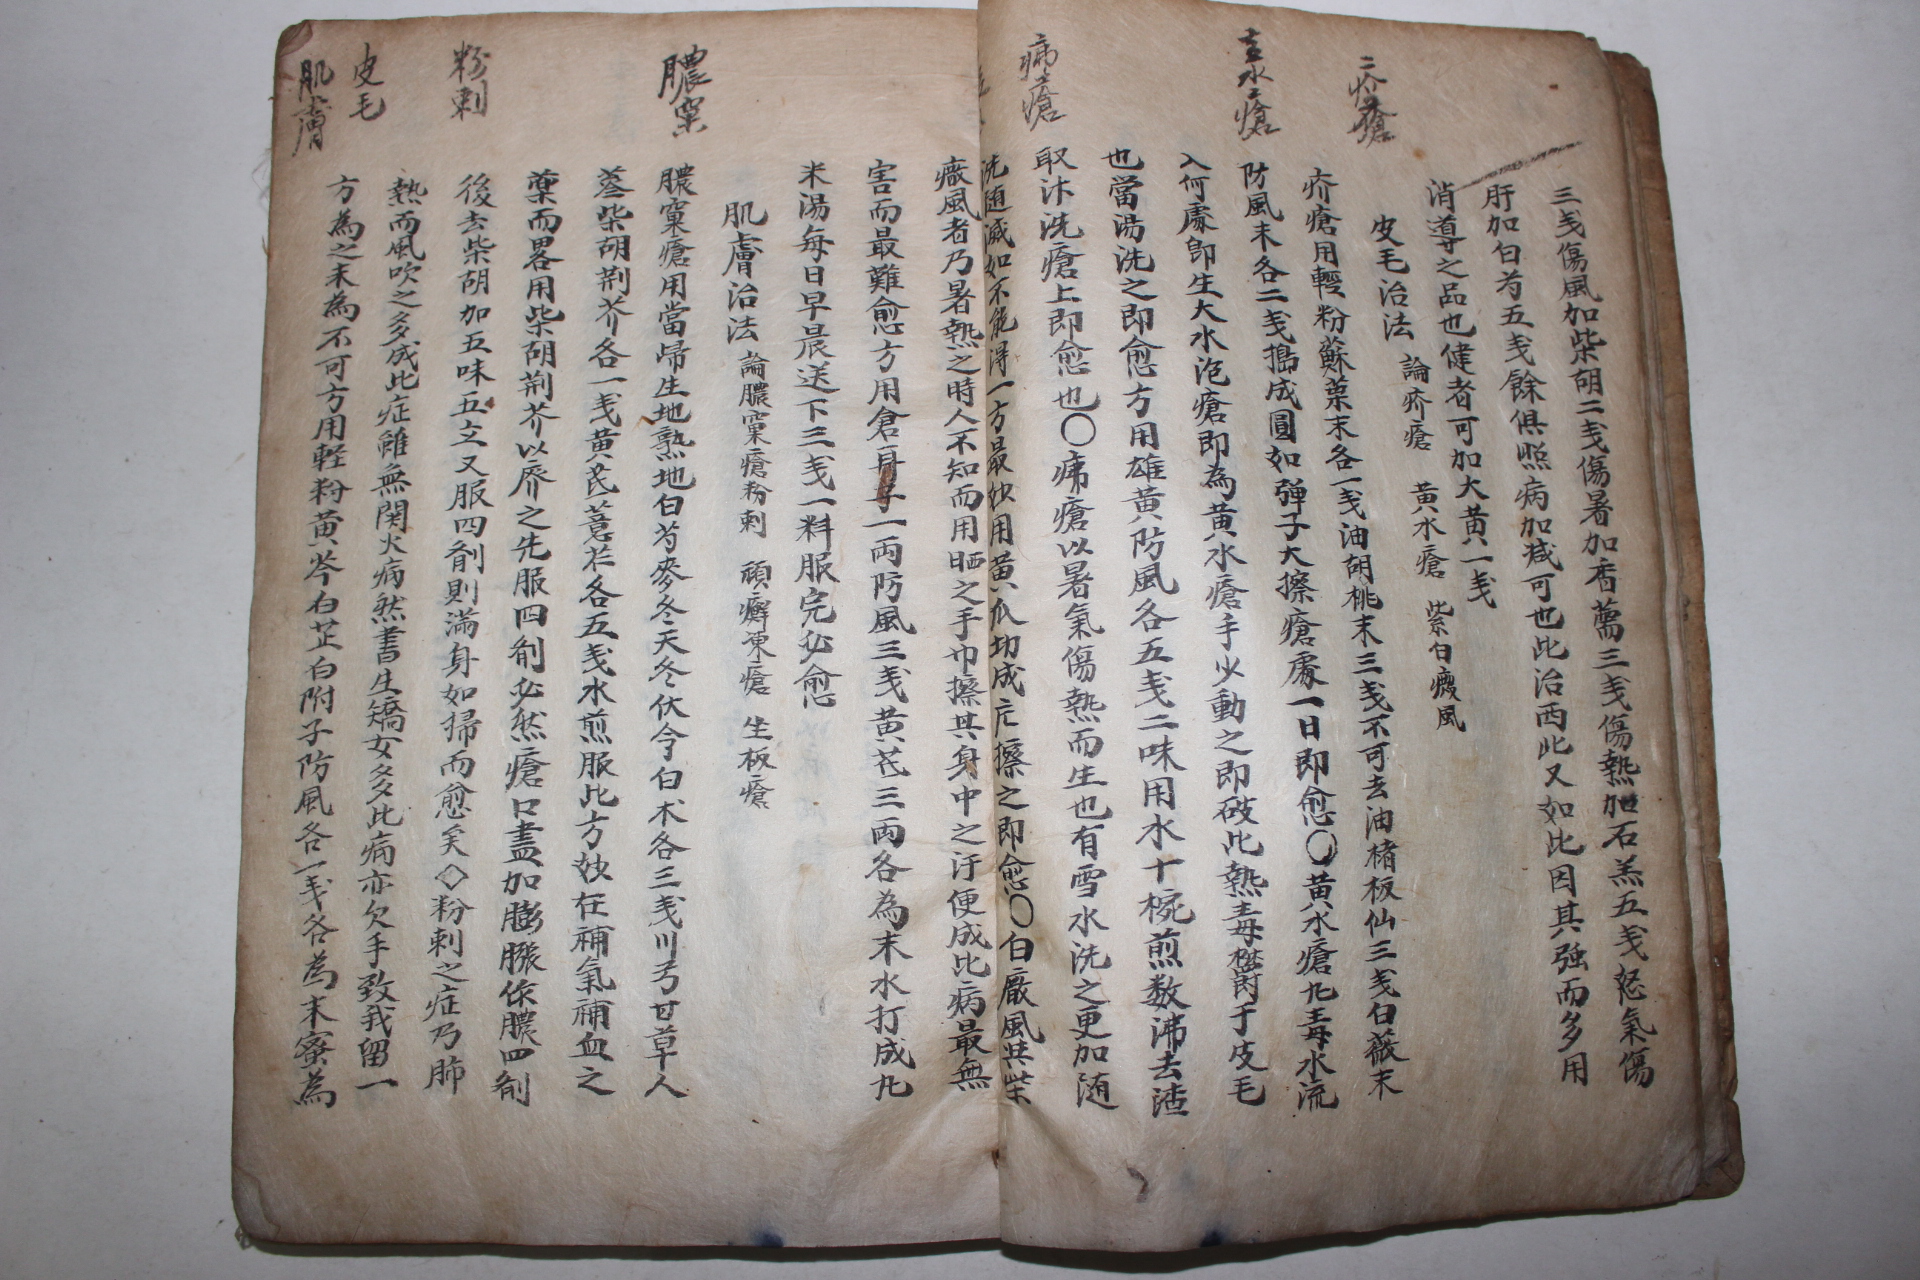 疥瘡
黃水瘡
痱瘡
三戔傷風加柴胡二戔傷暑加香薷三戔傷熱加石羔五戔怒氣傷
肝加白芍五戔餘俱照病加减可也此治西此又如此因其強而多用
消導之品也健者可加大黃一戔
皮毛治法 論疥瘡 黃水瘡 紫白癜風
疥瘡用輕粉蘇葉末各一戔油胡桃末三戔不可去油楮板仙三戔白薇末
防風末各二戔搗成圓如弹子大擦瘡處一日即愈○黃水瘡九毒水流
入何處即生大水泡瘡即為黃水瘡手少動之即破此熱毒欝于皮毛
也當湯洗之即愈方用雄黃防風各五戔二味用水十椀煎数沸去渣
取汁洗瘡上即愈也○痱瘡以暑氣傷熱而生也有雪水洗之更加随
洗随减如不能得一方最妙用黃瓜切成片擦之即愈○白癜風其柴
癜風者乃暑熱之時人不知而用晒之手巾擦其身中之汗便成此病最無
害而最難愈方用倉耳子一両防風三戔黃芪三両各為末水打成丸
米湯每日早晨送下三戔一料服完必愈
膿窠
粉刺
皮毛
肌膚
肌膚治法 論膿窠瘡粉刺 頑癬凍瘡 生板瘡
膿窠瘡用當㱕生地熟地白芍麥冬天冬伏今白术各三戔川芎甘草人
参柴胡荆芥各一戔黃芪薏苡各五戔水煎服此方妙在補氣補血之
藥而畧用柴胡荆芥以癠之先服四剤必然瘡口盡加膨膿依膿四剤
後去柴胡加五味五立又服四剤則満身如掃而愈矣◇粉刺之症乃肺
熱而風吹之多成此症雖無関大病然書生嬌女多多此病亦欠手致我留一
方為之末為不可方用軽粉黃芩白芷白附子防風各一戔各為末蜜為